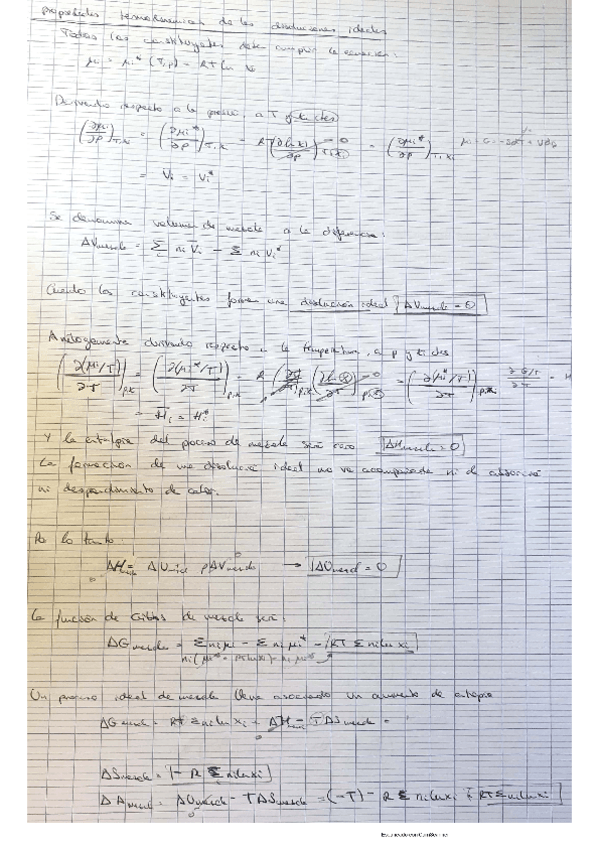 Propiedades termodinámicas de las disoluciones ideales
Todos los constituyentes debe cumplir la ecuación:
μi = μi* (T,p) - RT ln xi
Derivando respecto a la presión, a T y x ctes
(∂μi/∂p)T,x = (∂μi*/∂p)T,x - RT(∂lnx/∂p)T,x = 0 = (∂μi*/∂p)T,x
= Vi = Vi*
Se denomina volumen de mezcla a la diferencia:
ΔVmezcla = Σ ni Vi - Σ ni Vi*
Cuando los constituyentes forman una disolución ideal ΔVmezcla = 0
Análogamente derivando respecto a la temperatura, a p y x ctes
(∂(μi/T)/∂T)p,x = (∂(μi*/T)/∂T)p,x - R (∂lnx/∂T)p,x = 0 = (∂(μi*/T)/∂T)p,x
= Hi = Hi*
Y la entalpía del proceso de mezcla será cero ΔHmezcla = 0
La formación de una disolución ideal no va acompañada ni de absorción
ni desprendimiento de calor.
Por lo tanto
ΔHmezcla = ΔUmezcla pΔVmezcla → ΔUmezcl = 0
La función de Gibbs de mezcla será:
ΔGmezcla = Σ ni μi - Σ ni μi* = RT Σ ni ln xi
Un proceso ideal de mezcla lleva asociado un aumento de entropía
ΔGmezcla = RT Σ ni ln xi = ΔHm - TΔSmezcla =
ΔSmezcla = - R Σ ni ln xi
ΔAmezcl = ΔUmezcla - TΔSmezcla = (-T) - R Σ ni ln xi = RT Σ ni ln xi
Escaneado con CamScanner